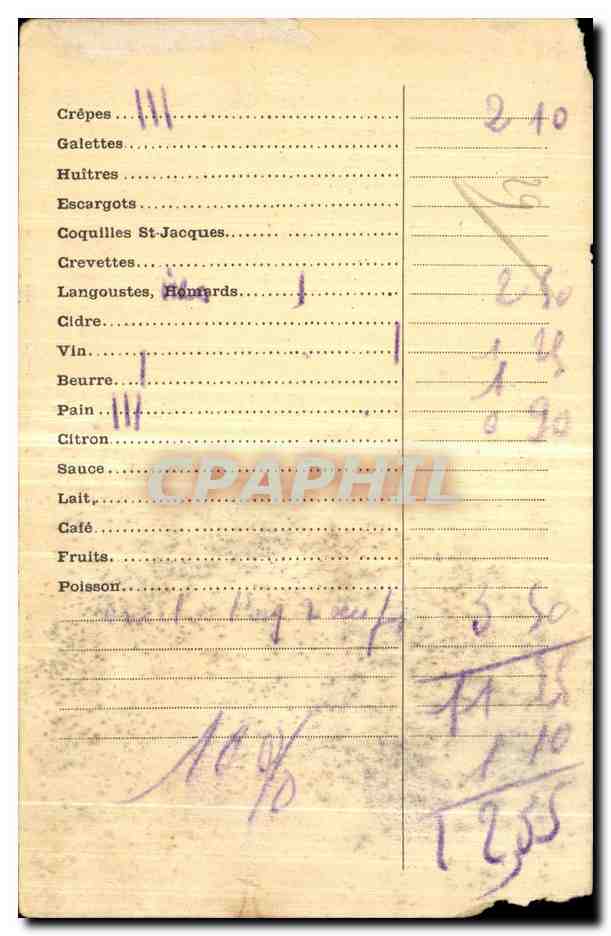 Crêpes III 2 10
Galettes
Huîtres
Escargots
Coquilles St-Jacques
Crevettes
Langoustes, Homards I 2 50
Cidre
Vin I 1 25
Beurre I 1
Pain III 0 90
Citron
Sauce
CPAPHIL
Lait,
Café
Fruits
Poisson
3 50
11 25
10 % 1 10
12 55